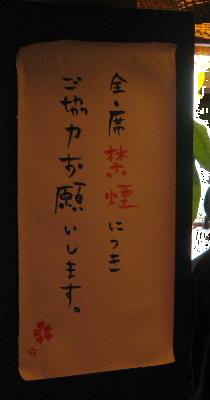 全席禁煙につき
ご協力お願いします。